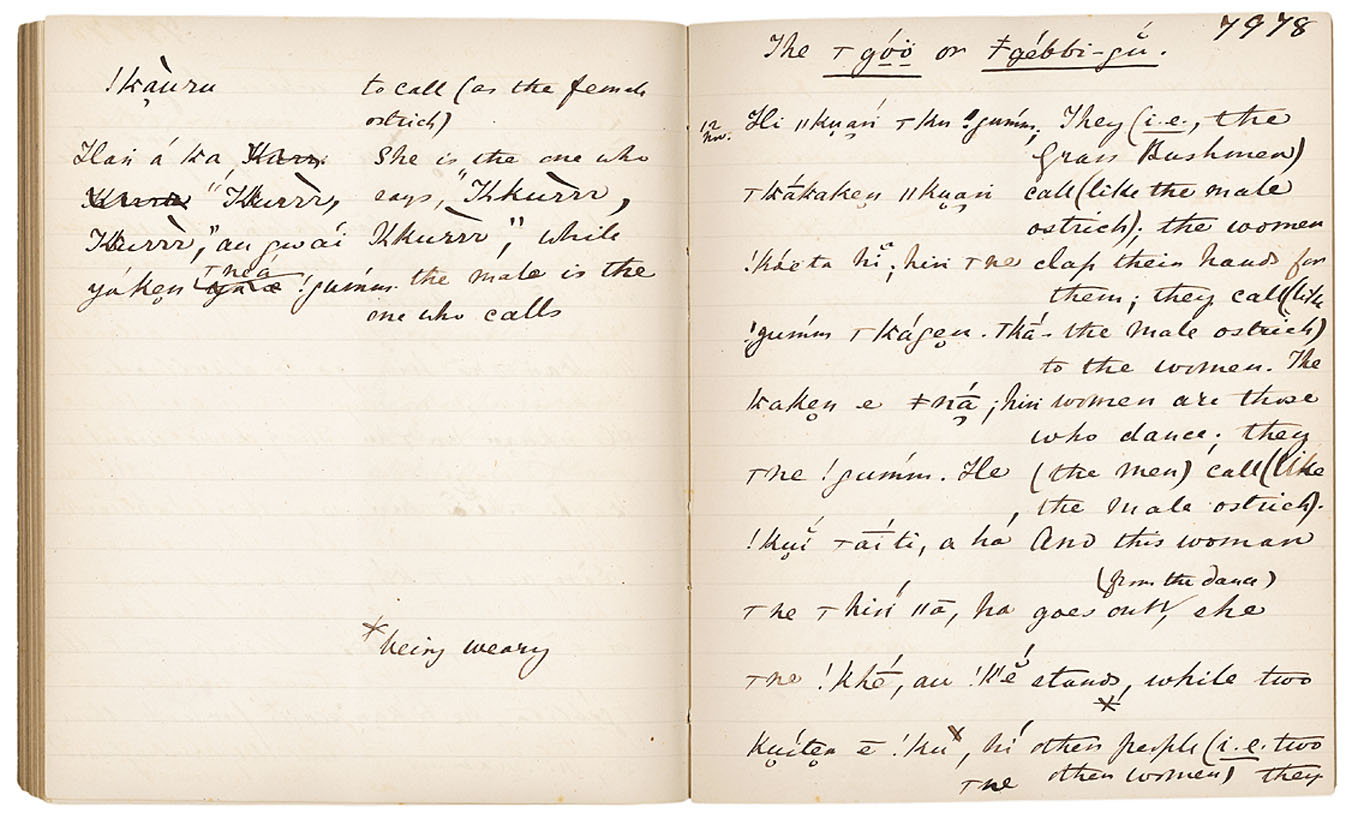 !kạ̀uru to call (as the female
ostrich)
Hań á ka, She is the one who
"Kkùrrr, says, "Kkùrrr,
Kkùrrr," au gwáí Kkùrrr", while
yákẹn ⊤neá !gúmm. the male is the
one who calls
*being weary
7978
The ⊤góö or ǂgébbi-gŭ.
12 Nov.
Hi ǁkuạń ⊤ku !gúmm; They (i.e., the
Grass Bushmen)
⊤kā́kakẹn ǁkuạń call (like the male
ostrich); the women
!káeta hĭ; hiń ⊤ne clap their hands for
them; they call (like
!gúmm ⊤kágẹn. ⊤ká- the male ostrich)
to the women. The
kakẹn e ǂnā́; hiń women are those
who dance; they
⊤ne !gúmm. He (the men) call (like
the male ostrich).
!kuí ⊤áiti, a há And this woman
(from the dance)
⊤ne ⊤hiń ǁā, ha goes out, she
⊤ne !khé, au !k'ĕ́ stands, while two
*
kuítẹn ē !ku*, hí other people (i.e. two
⊤ne other women) they